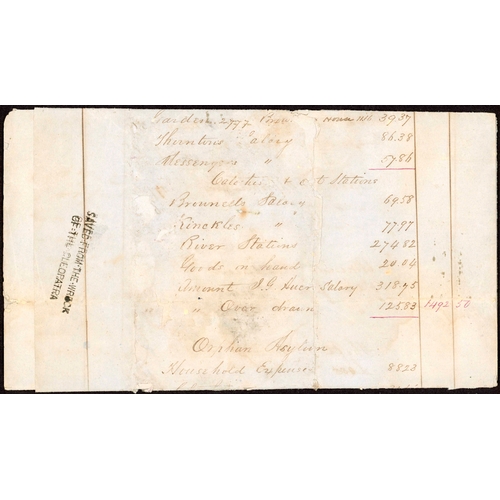 Garden 39.37
Thorntons Salary 86.38
Messengers " 57.86
Stations
Brownells Salary 69.58
Kinckles " 77.97
River Stations 274.82
Goods on hand 20.04
Amount J G Auer Salary 318.45
" " Over drawn 125.83 1492 50
Orphan Asylum
Household Expenses 88 23
SAVED FROM THE WRECK
OF THE CLEOPATRA